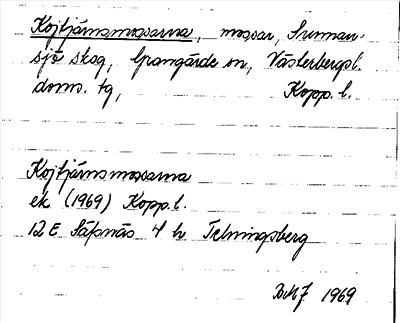 Kojtjärnsmossarna, mossar, Sunnan-
sjö skog, Grangärde sn, Västerbergsl.
doms. tg, Kopp. l.
Kojtjärnsmossarna
ek (1969) Kopp. l.
12 E Säfsnäs 4 h
1969